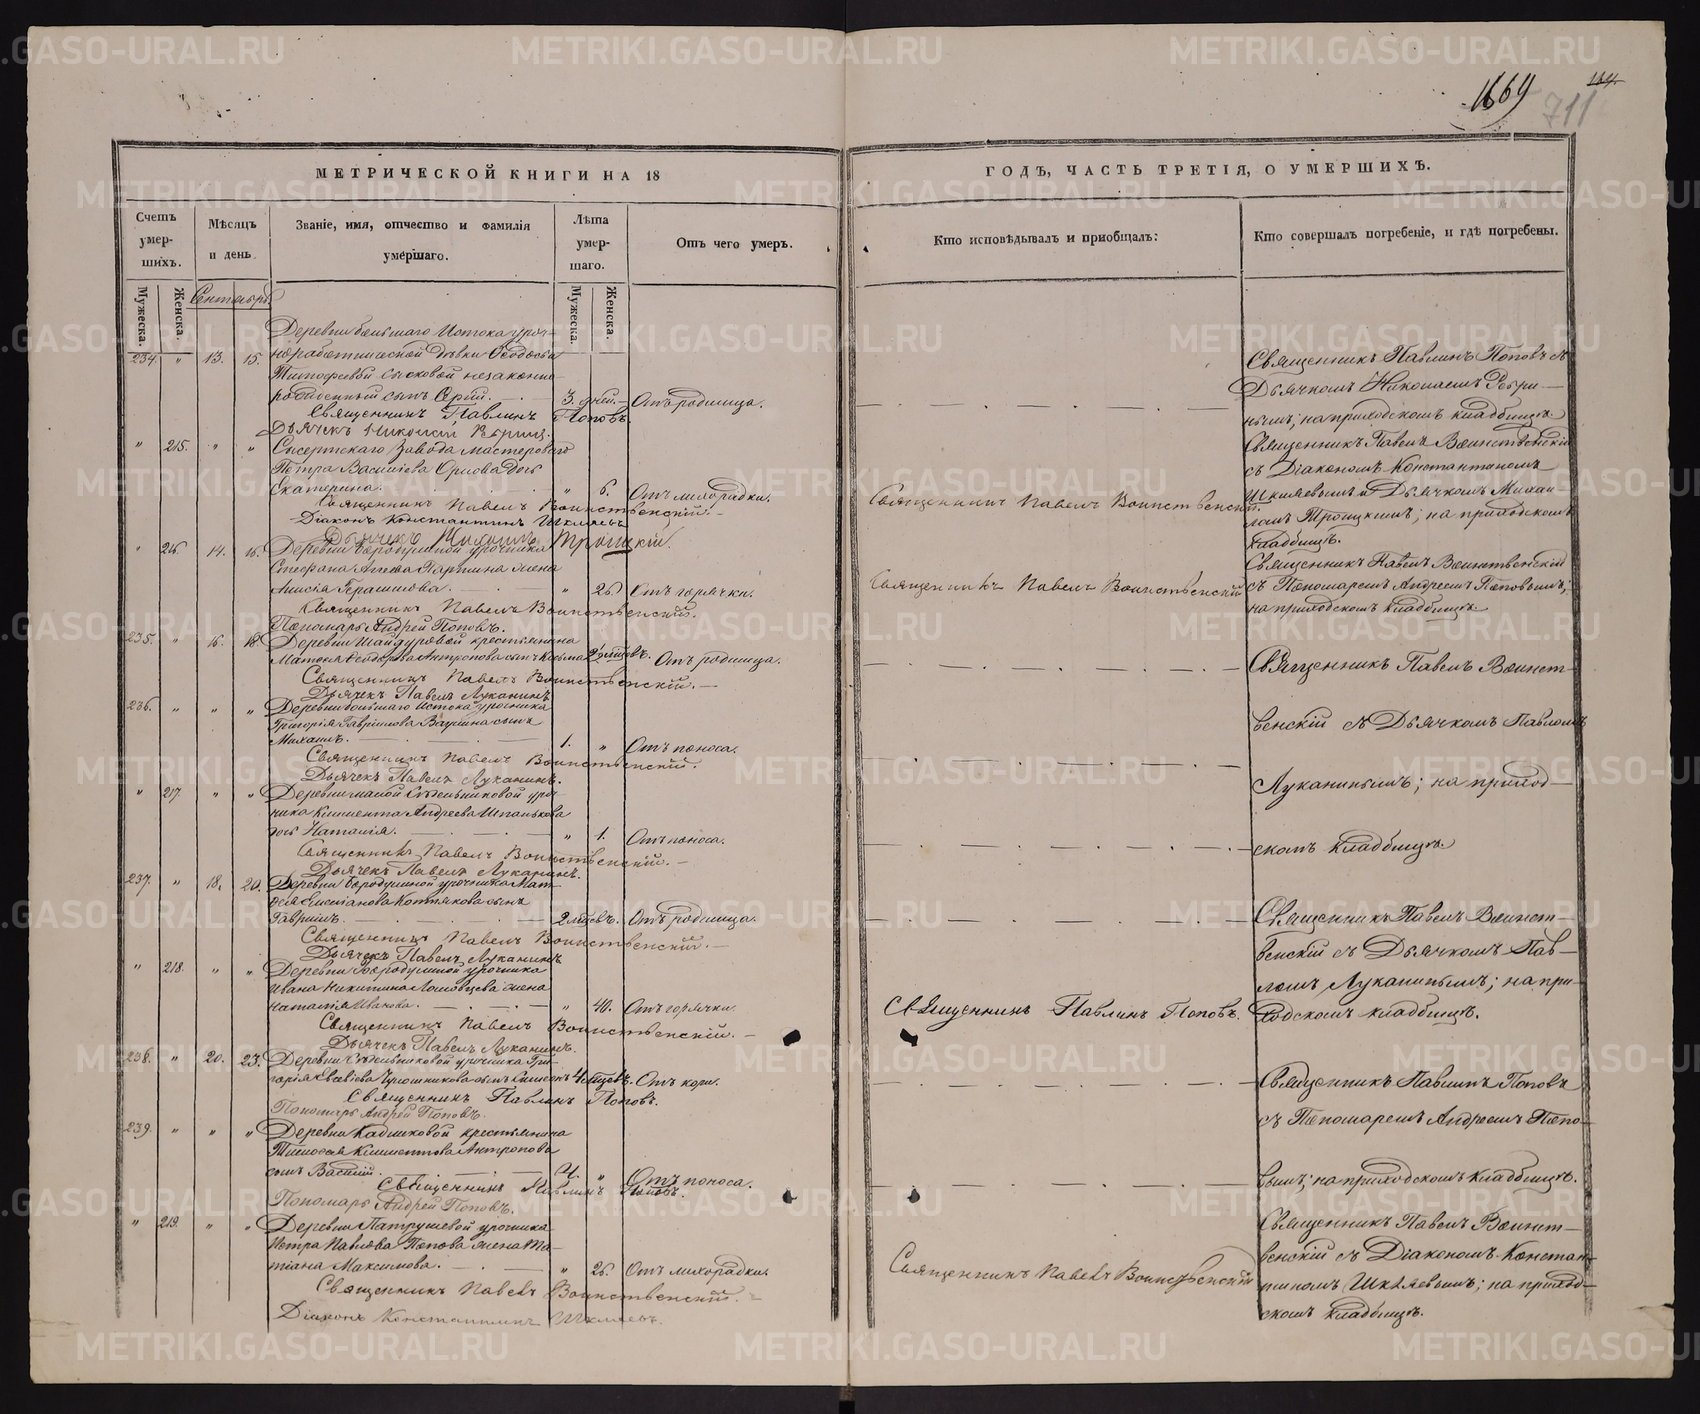 169
164.
711
МЕТРИЧЕСКОЙ КНИГИ НА 18
ГОДЪ, ЧАСТЬ ТРЕТІЯ, О УМЕРШИХЪ.
Счетъ умер-шихъ.
Мѣсяцъ и день
Званіе, имя, отчество и фамилія умершаго.
Лѣта умер-шаго.
Отъ чего умеръ.
Кто исповѣдывалъ и пріобщалъ:
Кто совершалъ погребеніе, и гдѣ погребены.
Мужеска.
Женска.
Сентябрь
Мужеска.
Женска.
Деревни большаго Истока уроч-
234. " 13. 15. норабочнической дѣвки Ѳеодосьи
Тимофеевой Сысковой незаконно
рожденный сынъ Юрій. 3 дней. Отъ родимца.
Священникъ Павлинъ Поповъ.
Дьячекъ Николай
" 215. " " Сысертскаго Завода мастероваго
Петра Василіева Орлова дочь
Екатерина. " 6. Отъ лихорадки.
Священникъ Павелъ Воинственскій.
Діаконъ Константинъ Шкляевъ
Дьячекъ Михаилъ Троицкій.
" 216. 14. 16. Деревни Бородулиной урочника
Стефана Паршина жена
Анисія Герасимова. " 26. Отъ горячки.
Священникъ Павелъ Воинственскій.
Пономарь Андрей Поповъ.
235. " 16. 18. Деревни Шайдуровой крестьянина
Матвея Ѳеодорова Антропова сынъ Козьма 2 мѣсяцевъ. Отъ родимца.
Священникъ Павелъ Воинственскій.
Дьячекъ Павелъ Луканинъ
236. " " " Деревни большаго Истока урочника
Григорія Гаврилова сынъ
Михаилъ. 1. " Отъ поноса.
Священникъ Павелъ Воинственскій.
Дьячекъ Павелъ Луканинъ.
" 217. " " Деревни малой Сѣдельниковой уроч-
ника Климента Андреева
дочь Наталія. " 1. Отъ поноса.
Священникъ Павелъ Воинственскій.
Дьячекъ Павелъ Луканинъ.
237. " 18. 20. Деревни Бородулиной урочника Мат-
ѳея Котлякова сынъ
Гавріилъ. 2 мѣсяцевъ. Отъ родимца.
Священникъ Павелъ Воинственскій.
Дьячекъ Павелъ Луканинъ
" 218. " " Деревни Бородулиной урочника
Ивана Никитина жена
Наталія Иванова. " 40. Отъ горячки.
Священникъ Павелъ Воинственскій.
Дьячекъ Павелъ Луканинъ.
238. " 20. 23. Деревни Сѣдельниковой урочника Гри-
горія сынъ 4 мѣсяцевъ. Отъ кори.
Священникъ Павлинъ Поповъ.
Пономарь Андрей Поповъ.
239. " " " Деревни Кадниковой крестьянина
Тимоѳея Климентова Антропова
сынъ Василій. 4 " Отъ поноса.
Священникъ Павлинъ Поповъ.
Пономарь Андрей Поповъ.
" 219. " " Деревни Патрушевой урочника
Петра Павлова Попова жена Та-
тіана Максимова. " 26. Отъ лихорадки.
Священникъ Павелъ Воинственскій.
Діаконъ Константинъ Шкляевъ.
Священникъ Павелъ Воинственскій.
Священникъ Павелъ Воинственскій
Священникъ Павлинъ Поповъ.
Священникъ Павелъ Воинственскій
Священникъ Павлинъ Поповъ съ
Дьячкомъ Николаемъ
нымъ; на приходскомъ кладбищѣ.
Священникъ Павелъ Воинственскій
съ Діакономъ Константиномъ
Шкляевымъ и Дьячкомъ Михаи-
ломъ Троицкимъ; на приходскомъ
кладбищѣ.
Священникъ Павелъ Воинственскій
съ Пономаремъ Андреемъ Поповымъ;
на приходскомъ кладбищѣ.
Священникъ Павелъ Воинст-
венскій съ Дьячкомъ Павломъ
Луканинымъ; на приход-
скомъ кладбищѣ.
Священникъ Павелъ Воинст-
венскій съ Дьячкомъ Пав-
ломъ Луканинымъ; на при-
ходскомъ кладбищѣ.
Священникъ Павлинъ Поповъ
съ Пономаремъ Андреемъ Попо-
вымъ; на приходскомъ кладбищѣ.
Священникъ Павелъ Воинст-
венскій съ Діакономъ Констан-
тиномъ Шкляевымъ; на приход-
скомъ кладбищѣ.
METRIKI.GASO-URAL.RU